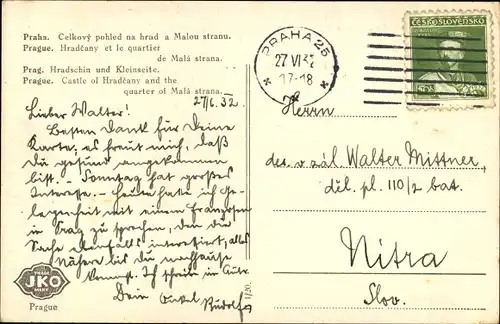 Praha. Celkový pohled na hrad a Malou stranu.
Prague. Hradčany et le quartier
de Malá strana.
Prag. Hradschin und Kleinseite.
Prague. Castle of Hradčany and the
quarter of Malá strana.
27/6.32.
Lieber Walter!
Besten Dank für Deine
Karte; es freut mich, daß
Du gesund angekommen
bist. – Sonntag hat großes
Interesse. – Heute hatte ich Ge-
legenheit mit einem Franzosen
in Prag zu sprechen, den die
Sache ebenfalls interessiert, alles
Nähere bis Du nachhause
kommst. Ich schreib in
Dein Onkel Rudolf
TRADE
JKO
MARK
Prague
1/20.
PRAHA 25
27 VI 32
17-18
ČESKOSLOVENSKO
50h
Herrn
des. v zál. Walter Mittner,
díl. pl. 110/2 bat.
Nitra
Slov.